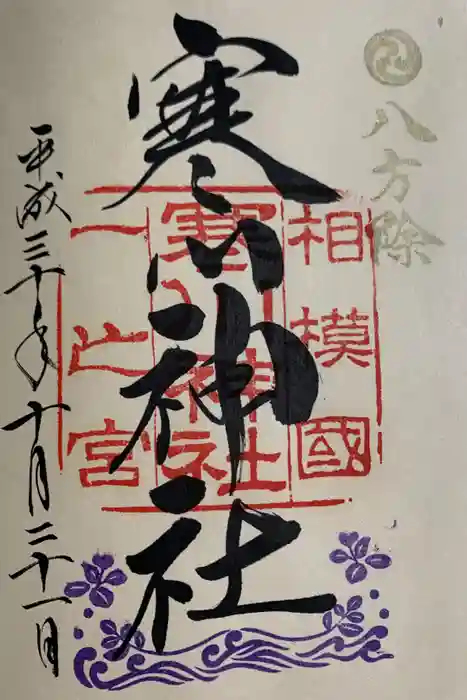 八方除
寒川神社
相模國
寒川神社
一之宮
平成三十年十月二十一日